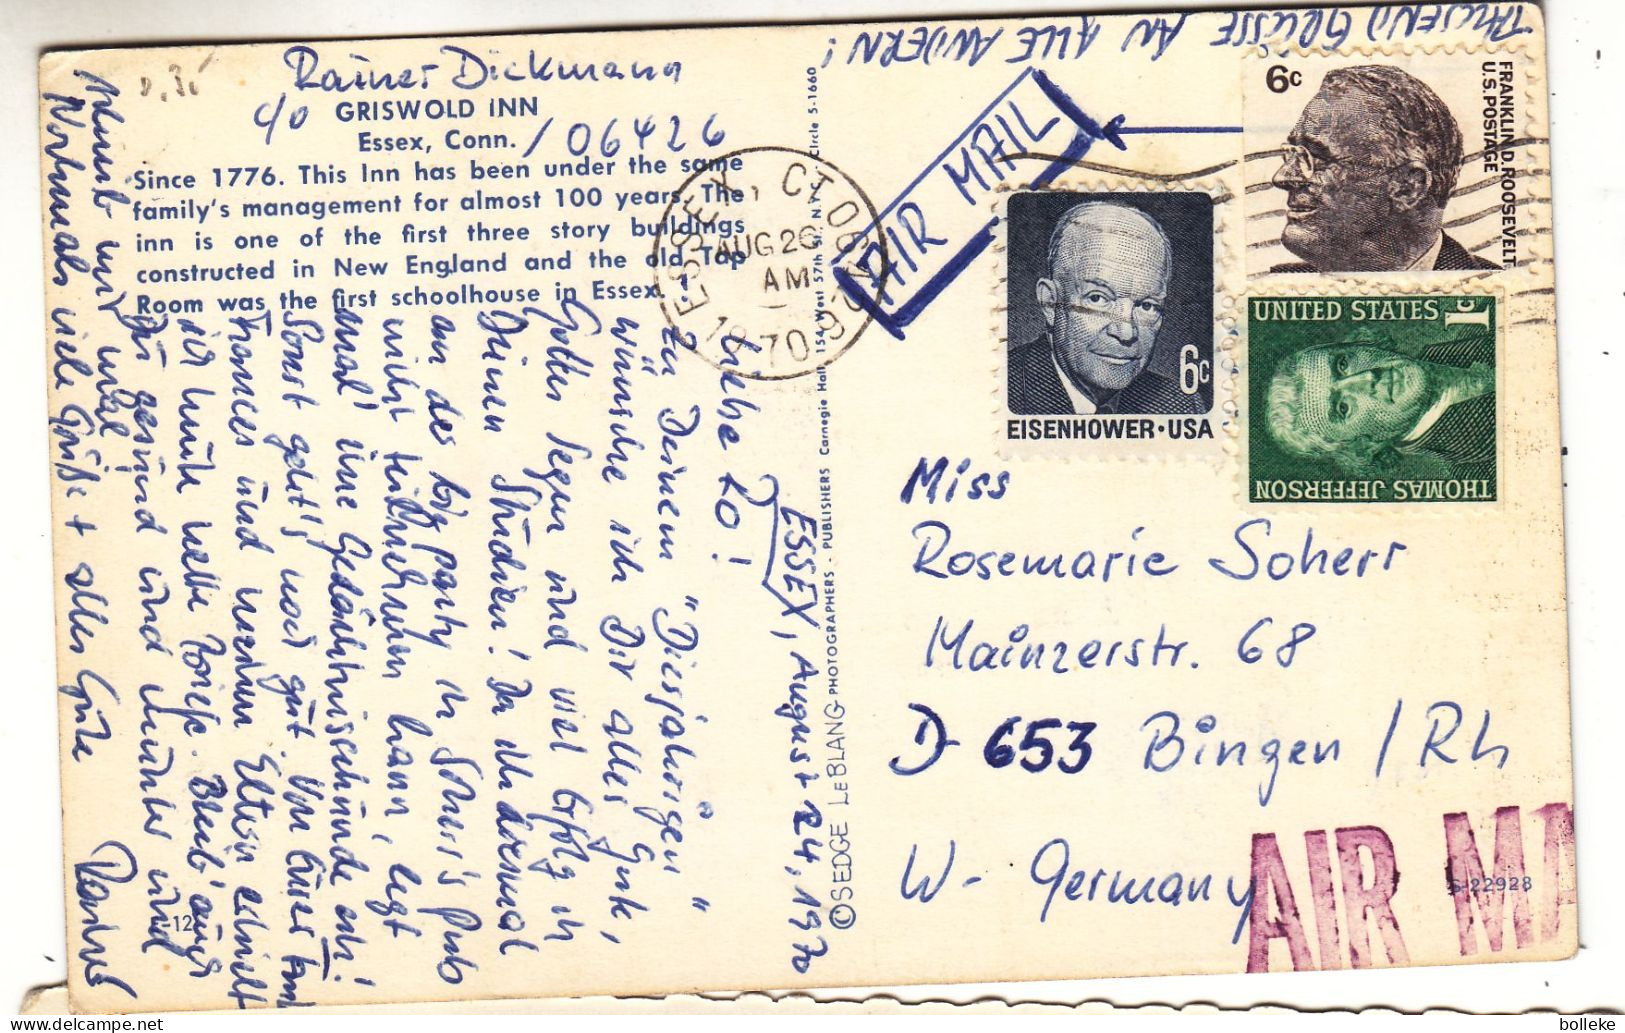 Rainer Dickmann
c/o GRISWOLD INN
Essex, Conn. / 06426
Since 1776. This Inn has been under the same
family's management for almost 100 years. The
inn is one of the first three story buildings
constructed in New England and the old Tap
Room was the first schoolhouse in Essex.
TAUSEND GRÜSSE AN ALLE ANDERN!
AIR MAIL
ESSEX, CT 06
AUG 26
AM
1970
6c
FRANKLIN D. ROOSEVELT
U.S. POSTAGE
6c
EISENHOWER · USA
UNITED STATES 1c
THOMAS JEFFERSON
ESSEX, August 24, 1970
Liebe Ro!
Zu Deinem "Diesjährigen"
wünsche ich Dir alles Gute,
Gottes Segen und viel Erfolg in
Deinen Studien! Da ich diesmal
an der party in Soherr's Pub
nicht teilnehmen kann, legt
mal' ine Gedächtnisminute ein!
Sonst geht's noch gut. Von Eurer Fam.
Frances und meinen Eltern erhielt
ich heute nette Briefe. Bleib' auch
Du gesund und munter und
Nochmals viele Grüße + alles Gute
Rainer
©SEDGE LEBLANG PHOTOGRAPHERS - PUBLISHERS Carnegie Hall 154 West 57th St., N.Y. Circle 5-1660
Miss
Rosemarie Soherr
Mainzerstr. 68
D-653 Bingen / Rh
W-Germany
AIR MA
S-22928